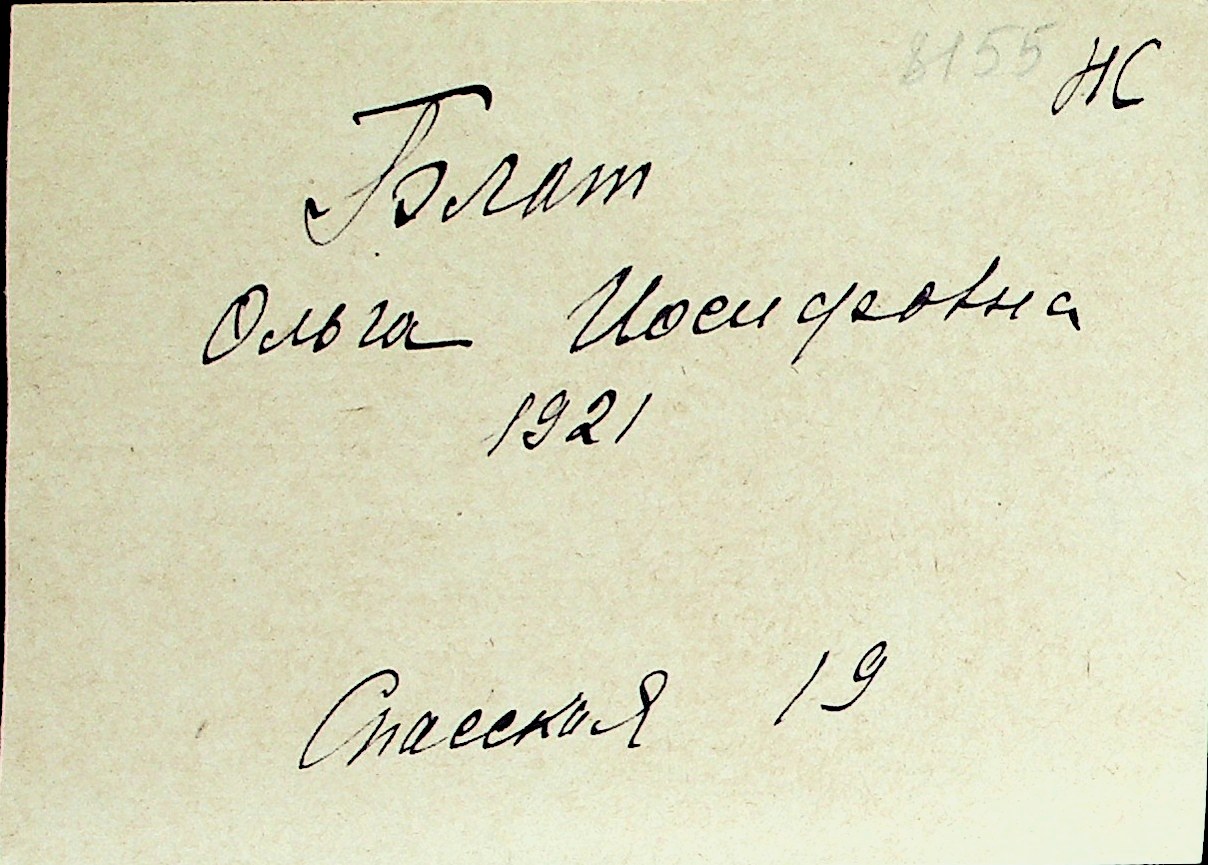 8155 НС
Блат
Ольга Иосифовна
1921
Спасская 19